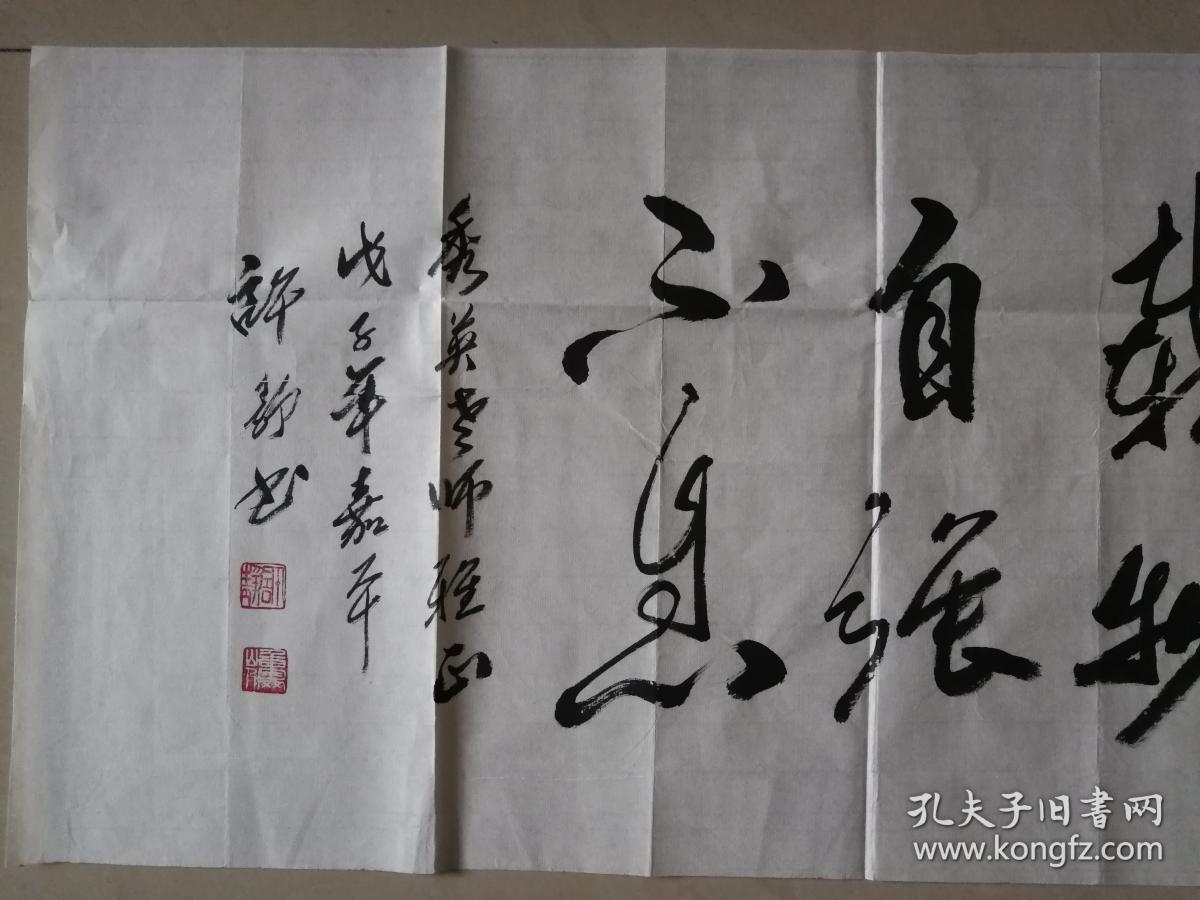 載物
自強
不息
秀英老师雅正
戊子年嘉平
許静书
孔夫子旧书网
www.kongfz.com